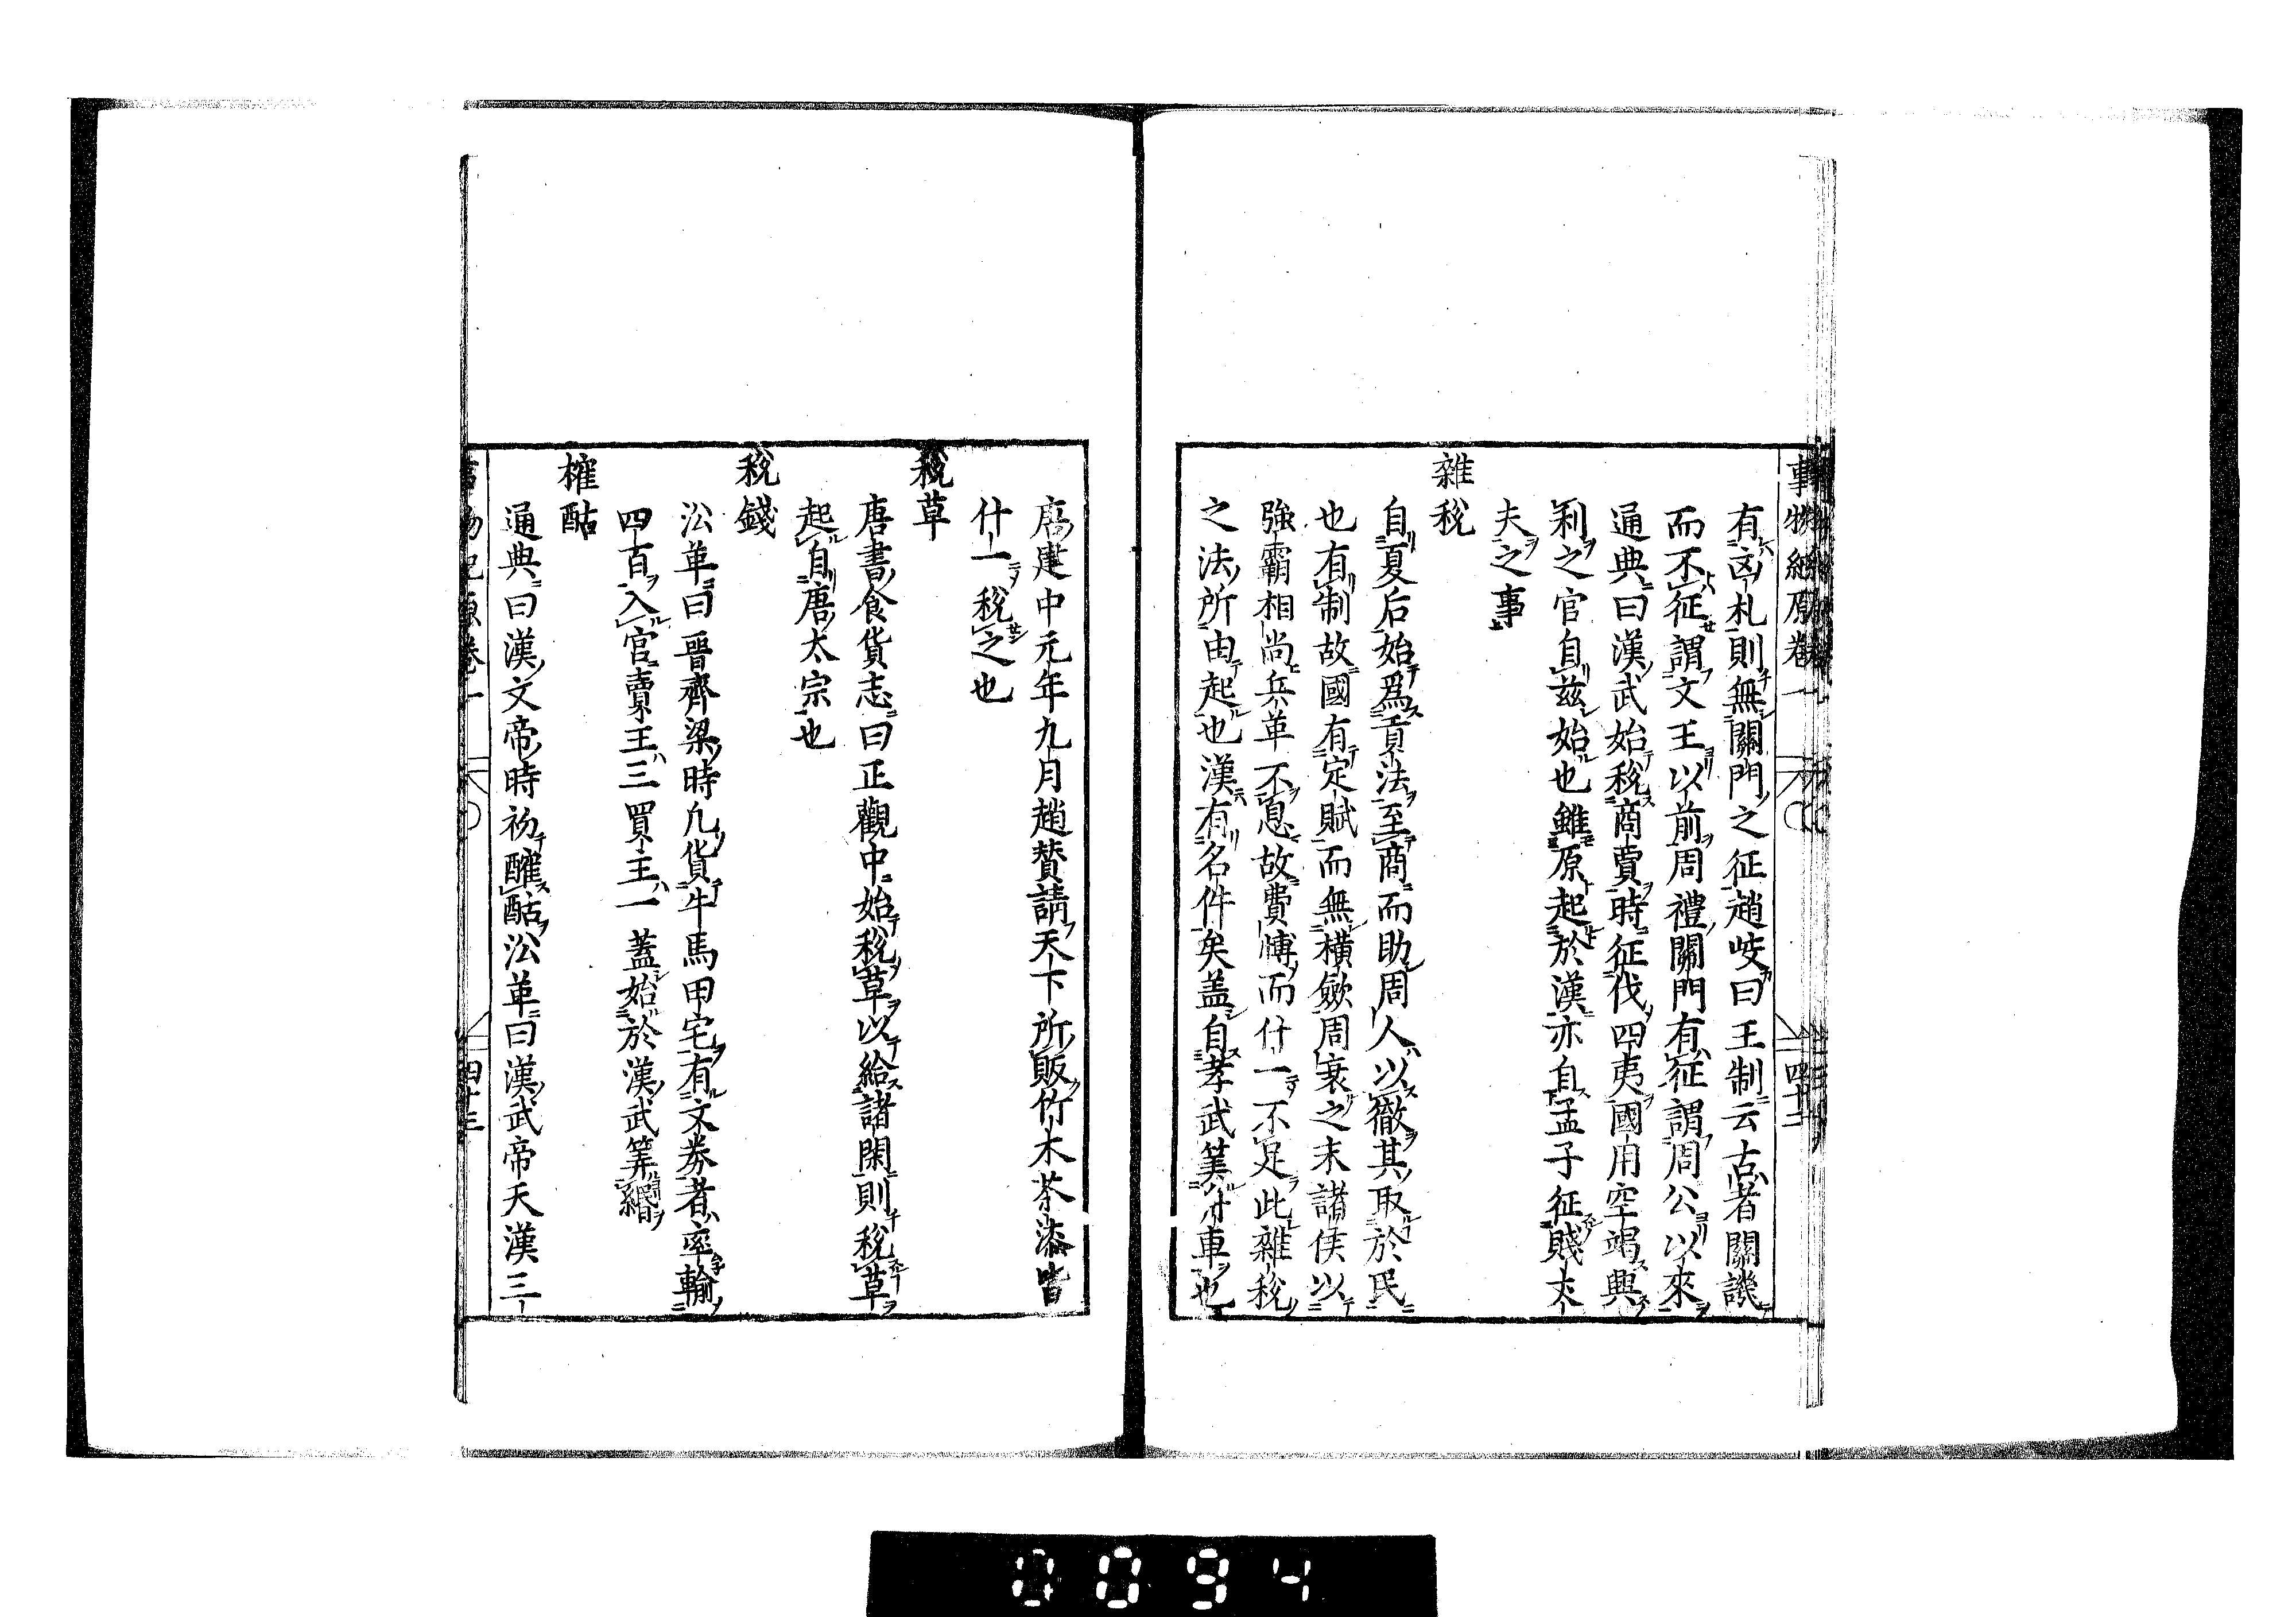 事物紀原卷一
四十二
有凶札則無關門之征趙岐曰王制云古者關譏
而不征謂文王以前周禮關門有征謂周公以來
通典曰漢武始稅商賈時征伐四夷國用空竭興
利之官自茲始也雖原起於漢亦自孟子征賤丈
夫之事
雜稅
自夏后始爲貢法至商而助周人以徹其取於民
也有制故國有定賦而無橫斂周衰之末諸侯以
強霸相尚兵革不息故費愽而什一不足此雜稅
之法所由起也漢有名件矣盖自孝武筭舟車也
唐建中元年九月趙賛請天下所販竹木茶漆皆
什一稅之也
稅草
唐書食貨志曰正觀中始稅草以給諸閑則稅草
起自唐太宗也
稅錢
㳂革曰晋齊梁時凢貨牛馬甲宅有文券者率輸
四百入官賣王三買主一蓋始於漢武筭緡
榷酤
通典曰漢文帝時初醛酤㳂革曰漢武帝天漢三
四十三
0094